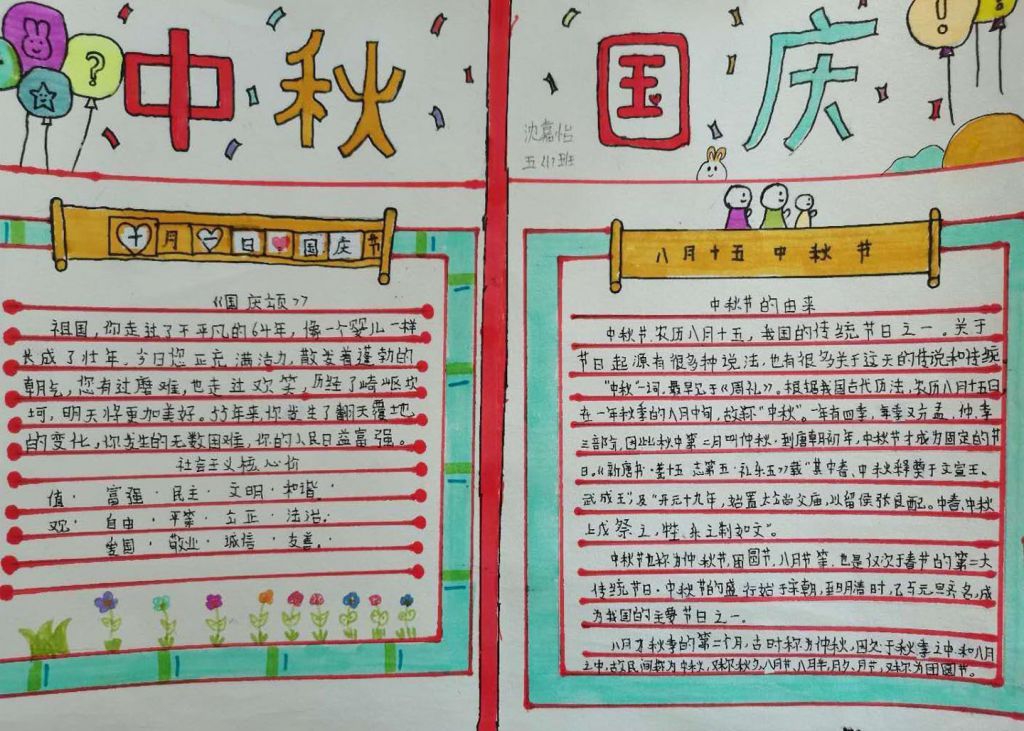 中秋
国庆
沈嘉怡
五(1)班
十月一日国庆节
《国庆颂》
祖国,你走过了不平凡的64年,像一个婴儿一样
长成了壮年。今日您正充满活力,散发着蓬勃的
朝气,您有过磨难,也走过欢笑,历经了崎岖坎
坷,明天将更加美好。55年来你发生了翻天覆地
的变化,你战胜的无数困难,你的人民日益富强。
社会主义核心价
值· 富强·民主·文明·和谐·
观· 自由·平等·公正·法治·
爱国·敬业·诚信·友善·
八月十五中秋节
中秋节的由来
中秋节,农历八月十五,我国的传统节日之一。关于
节日起源有很多种说法,也有很多关于这天的传说和传统
"中秋"一词,最早见于《周礼》。根据我国古代历法,农历八月十五日,
在一年秋季的八月中旬,故称"中秋"。一年有四季,每季又分孟、仲、季
三部分,因此秋中第二月叫仲秋,到唐朝初年,中秋节才成为固定的节
日。《新唐书·卷十五 志第五·礼乐五》载"其中春、中秋释奠于文宣王、
武成王"及"开元十九年,始置太公尚父庙,以留侯张良配。中春、中秋
上戊祭之,牲、乐之制如文"。
中秋节也称为仲秋节,团圆节,八月节等,也是仅次于春节的第二大
传统节日。中秋节的盛行始于宋朝,至明清时,已与元旦齐名,成
为我国的主要节日之一。
八月为秋季的第二个月,古时称为仲秋,因处于秋季之中和八月
之中,故民间称为中秋,又称秋夕,八月节,八月半,月夕,月节,又称为团圆节。